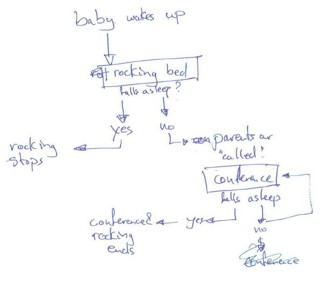 baby wakes up
rocking bed
falls asleep?
yes
no
rocking
stops
parents ar
"called".
conference
falls asleep
conference &
rocking
ends
yes
no
conference